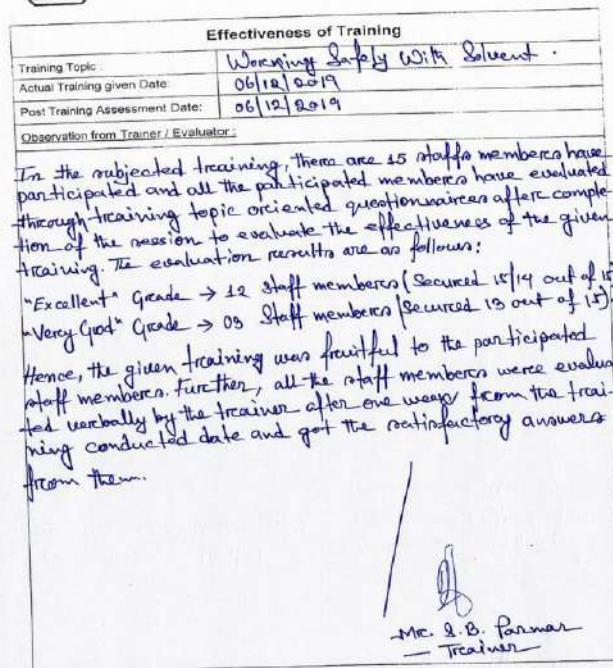 Effectiveness of Training
Training Topic : Working Safely With Solvent .
Actual Training given Date: 06/12/2019
Post Training Assessment Date: 06/12/2019
Observation from Trainer / Evaluator :
In the subjected training, there are 15 staffs members have
participated and all the participated members have evaluated
through training topic oriented questionnaires after comple-
tion of the session to evaluate the effectiveness of the given
training. The evaluation results are as follows:
"Excellent" Grade → 12 staff members (Secured 15/14 out of 15)
"Very Good" Grade → 03 Staff members (Secured 13 out of 15).
Hence, the given training was fruitful to the participated
staff members. Further, all the staff members were evalua
ted verbally by the trainer after one week from the trai-
ning conducted date and got the satisfactory answers
from them.
Mr. S.B. Parmar
— Trainer